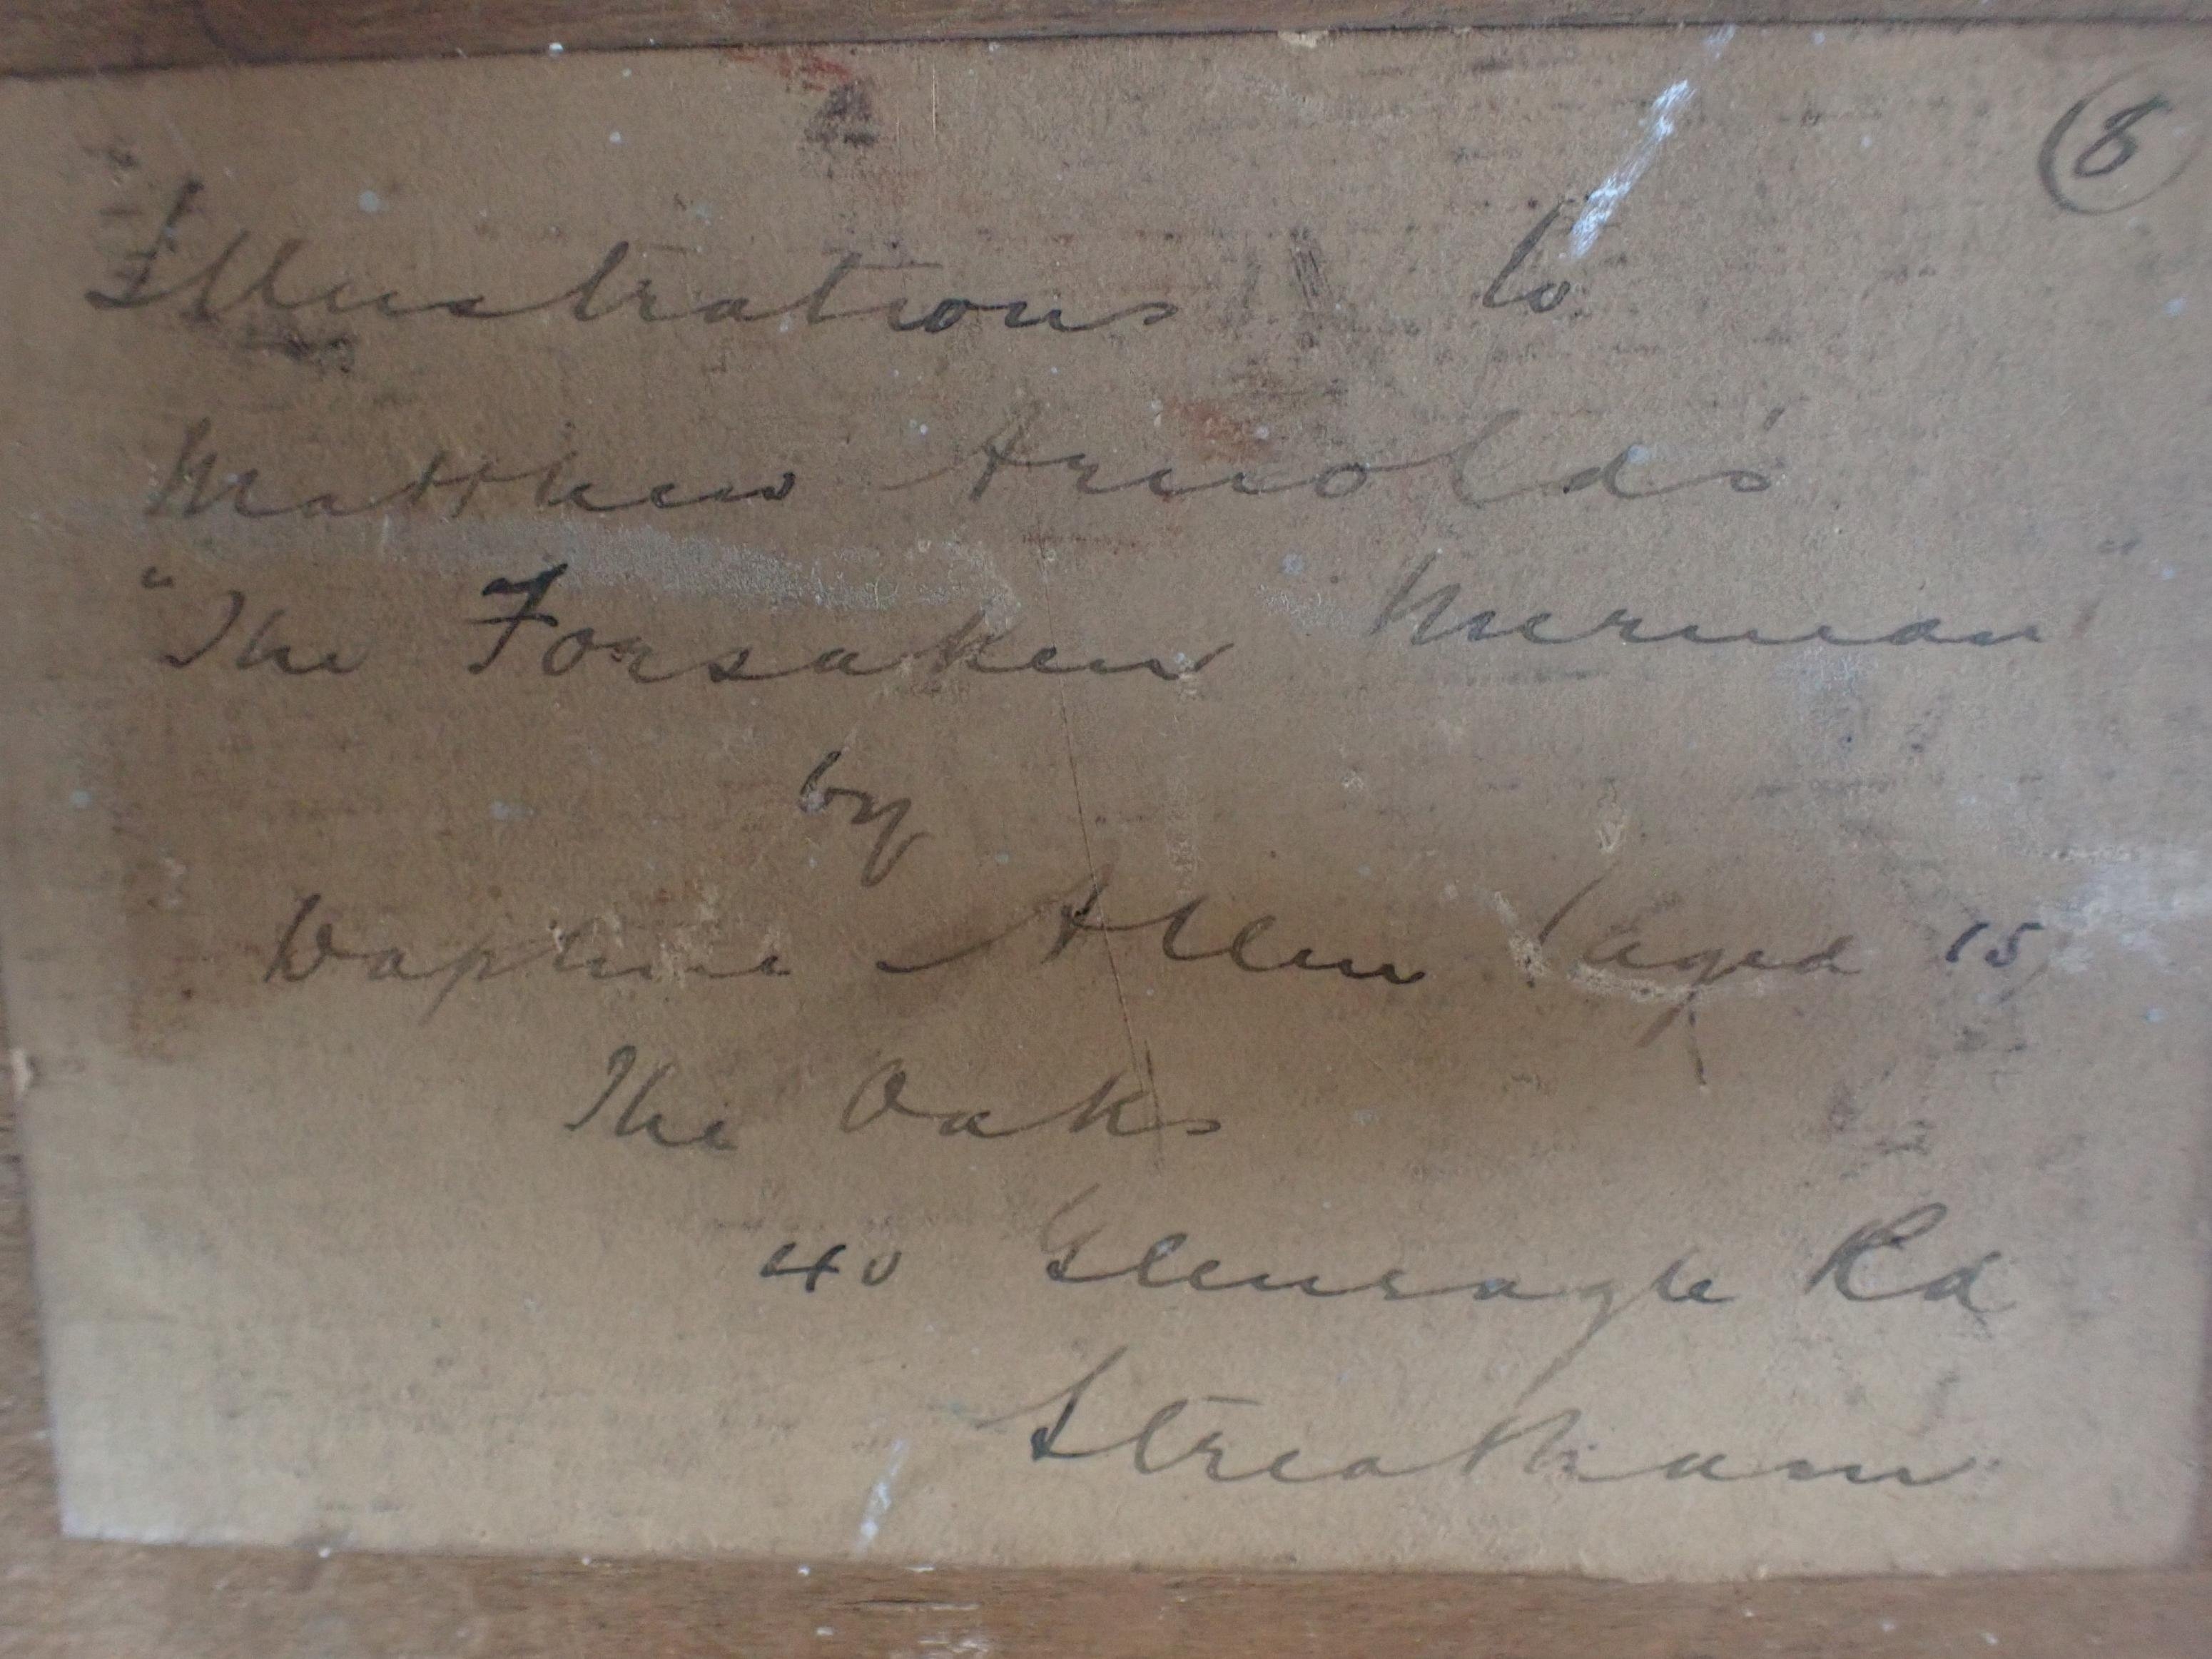 8
Illustrations to
Matthew Arnold's
"The Forsaken Merman"
by
Daphne Allen (aged 15)
The Oaks
40 Gleneagle Rd
Streatham